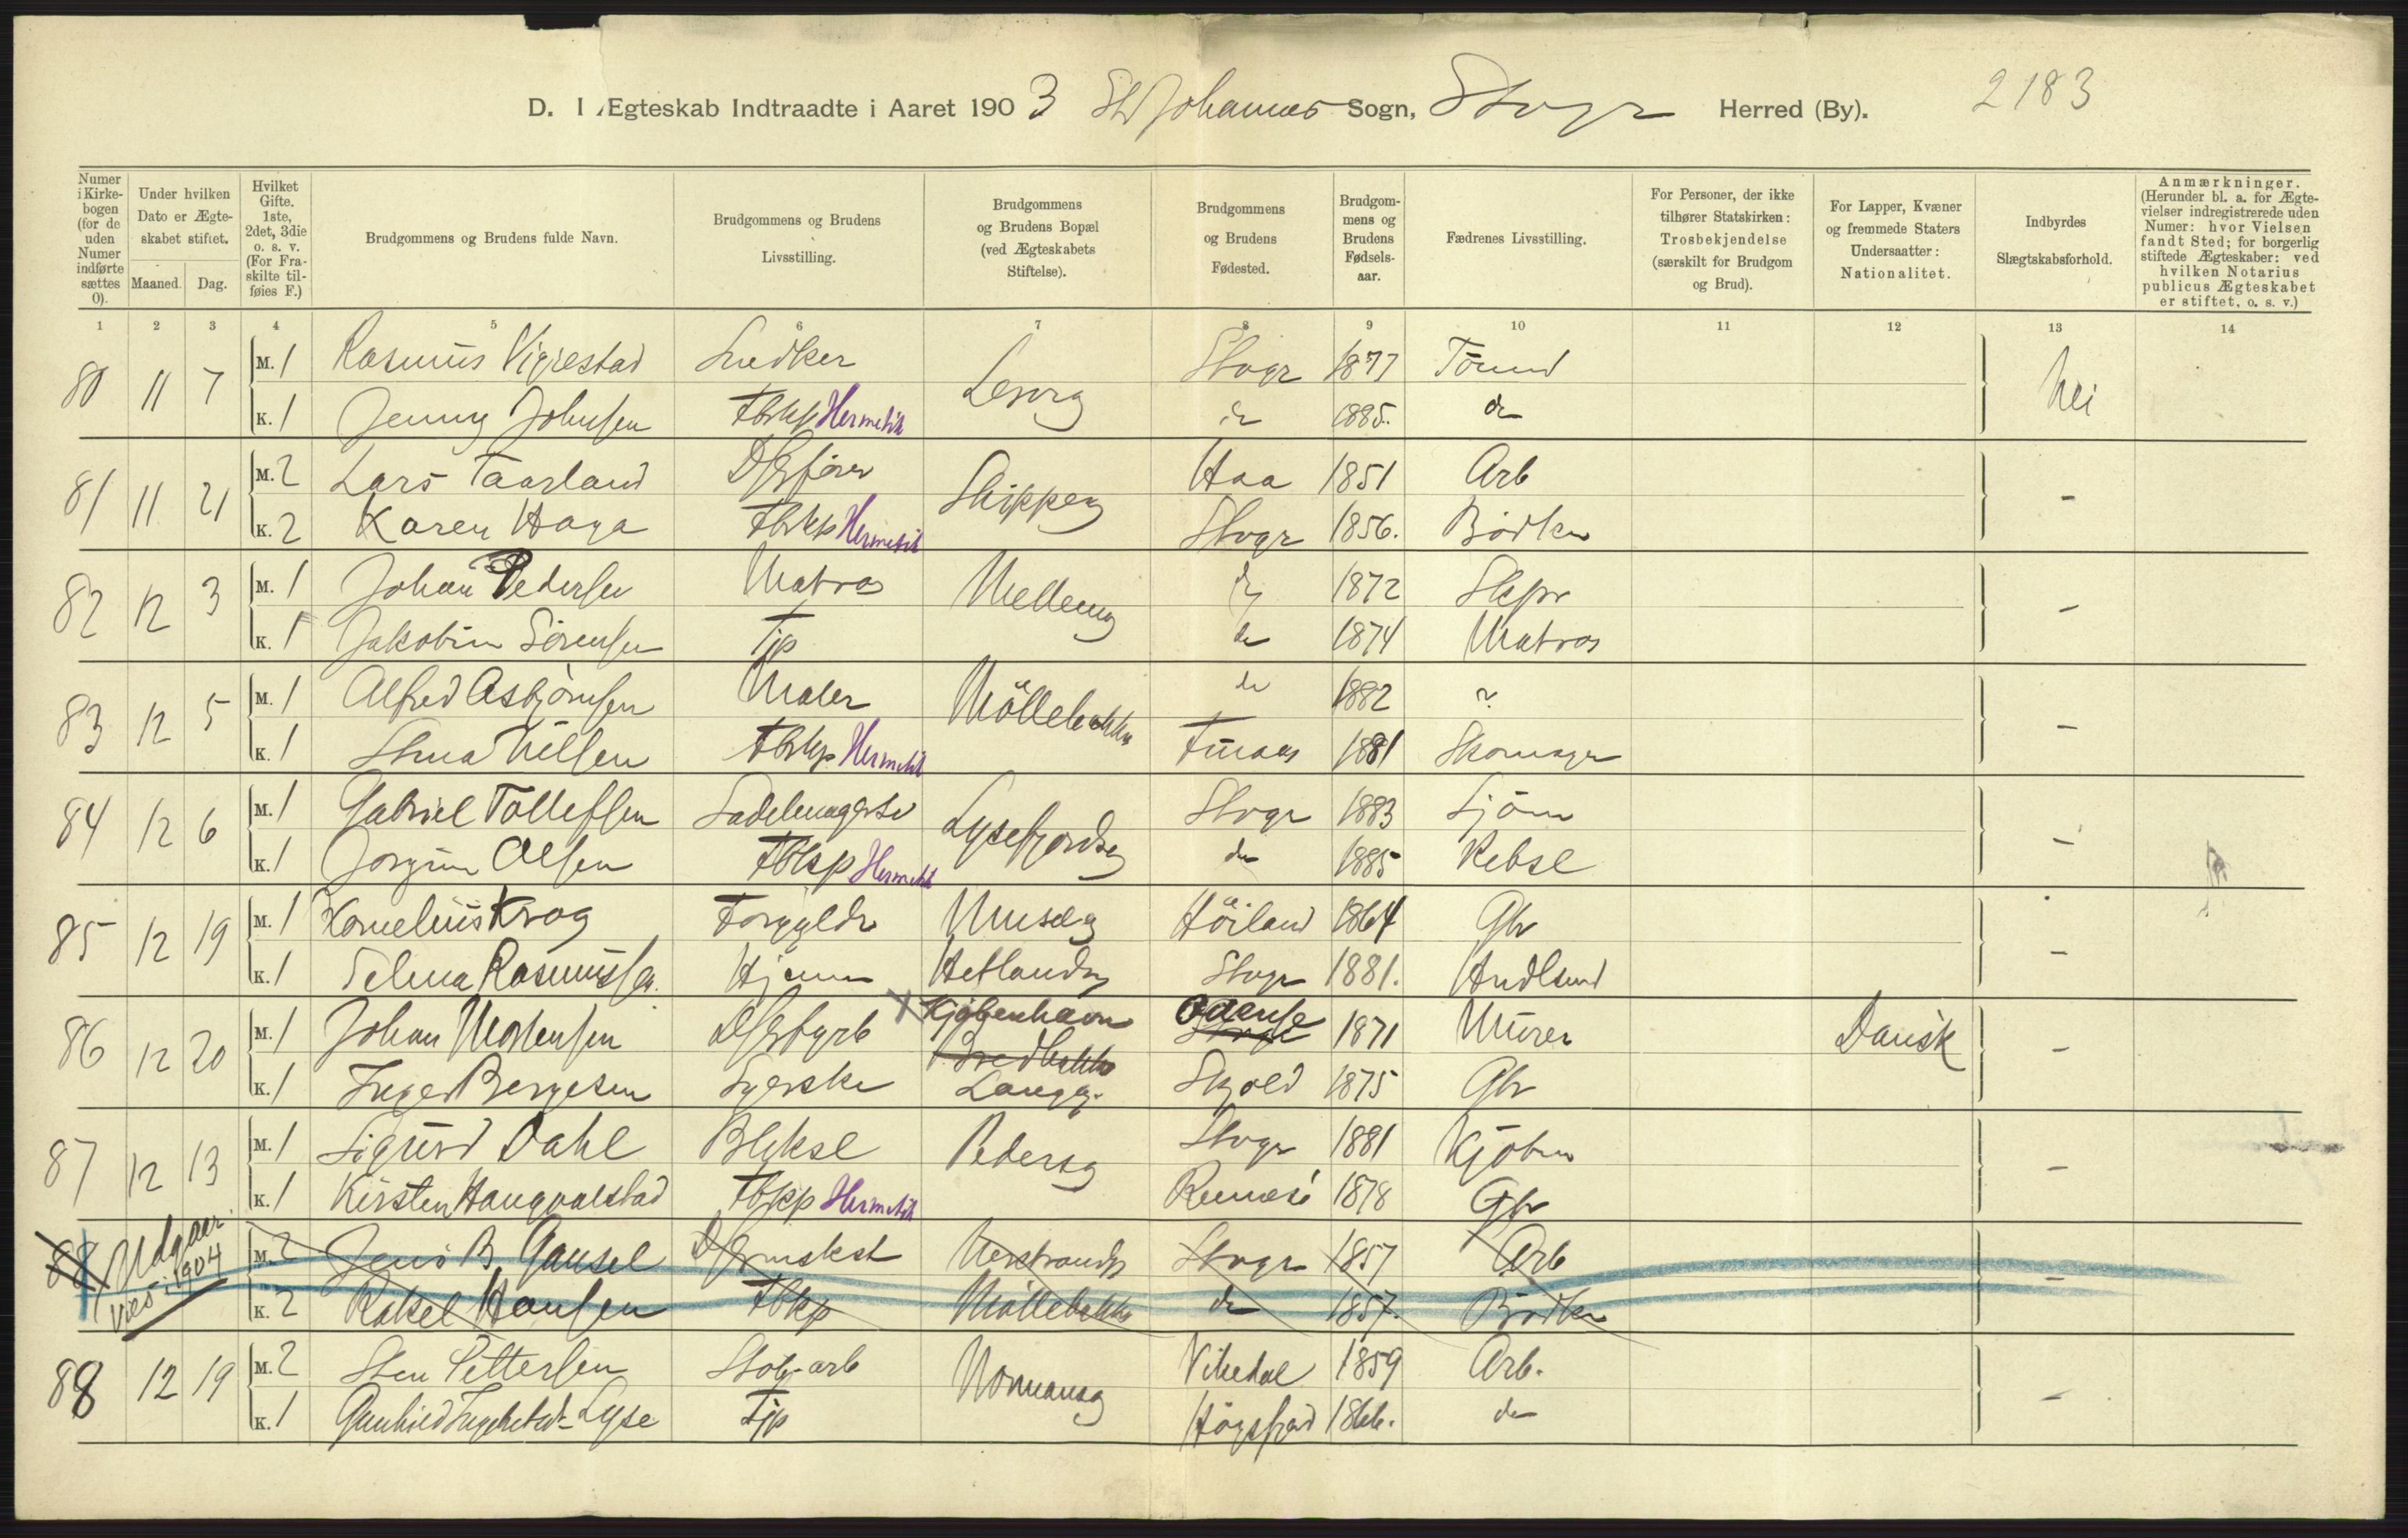 D. I Ægteskab Indtraadte i Aaret 1903 St Johannes Sogn, Stvgr Herred (By). 2183
Numer i Kirkebogen (for de uden Numer indførte sættes 0).
Under hvilken Dato er Ægteskabet stiftet.
Maaned. Dag.
Hvilket Gifte. 1ste, 2det, 3die o. s. v. (For Fraskilte tilføies F.)
Brudgommens og Brudens fulde Navn.
Brudgommens og Brudens Livsstilling.
Brudgommens og Brudens Bopæl (ved Ægteskabets Stiftelse).
Brudgommens og Brudens Fødested.
Brudgommens og Brudens Fødselsaar.
Fædrenes Livsstilling.
For Personer, der ikke tilhører Statskirken: Trosbekjendelse (særskilt for Brudgom og Brud).
For Lapper, Kvæner og fremmede Staters Undersaatter: Nationalitet.
Indbyrdes Slægtskabsforhold.
Anmærkninger. (Herunder bl. a. for Ægtevielser indregistrerede uden Numer: hvor Vielsen fandt Sted; for borgerlig stiftede Ægteskaber: ved hvilken Notarius publicus Ægteskabet er stiftet, o. s. v.)
1 2 3 4 5 6 7 8 9 10 11 12 13 14
80 11 7 M. 1 Rasmus Vigrestad Snedker Stvgr 1877 Tömmd Nei
K. 1 Jenny Johnsen Fbrkp Hermetik do 1885. do
81 11 21 M. 2 Lars Taarland Haa 1851 Arb -
K. 2 Karen Haga Fbrkp Hermetik Skipperg Stvgr 1856. Bödker
82 12 3 M. 1 Johan Pedersen Matros Mellemg do 1872 Skpr -
K. 1 Jakobine Sörensen Tjp do 1874 Matros
83 12 5 M. 1 Alfred Asbjörnsen Maler Möllebakken do 1882 ? -
K. 1 Stina Nilsen Fbrkp Hermetik Finaas 1881 Skomager
84 12 6 M. 1 Gabriel Tollefsen Sadelmagersv Lysefjordsg Stvgr 1883 Sjöm -
K. 1 Jorgine Olsen Fbkp Hermetik do 1885 Rebsl
85 12 19 M. 1 Kornelius Krog Forgylder Museg Höiland 1864 Gbr -
K. 1 Selma Rasmussen. Hjemme Hetlandsg Stvgr 1881. Hndlsmd
86 12 20 M. 1 Johan Mortensen DSfyrb X Kjøbenhavn Odense Stvgr 1871 Murer Dansk -
Bredbakken
K. 1 Inger Bergesen Syerske Langg. Skjold 1875 Gbr
87 12 13 M. 1 Sigurd Dahl Blyksl Pedersg Stvgr 1881 Kjöbm -
K. 1 Kirsten Haugvalstad Fbkp Hermetik Rennesö 1878 Gbr
88 Udgaar. Viet i 1904 M. 2 Jens B Gausel Verkstrandg Stvgr 1857 Arb -
K. 2 Rakel Hansen Fbkp Möllebakken do 1857. Bödker
88 12 19 M. 2 Sten Pettersen Stob-arb Normansg Vikedal 1859 Arb. -
K. 1 Gunhild Ingebretsdt Lyse Tjp Högsfjord 1866. do